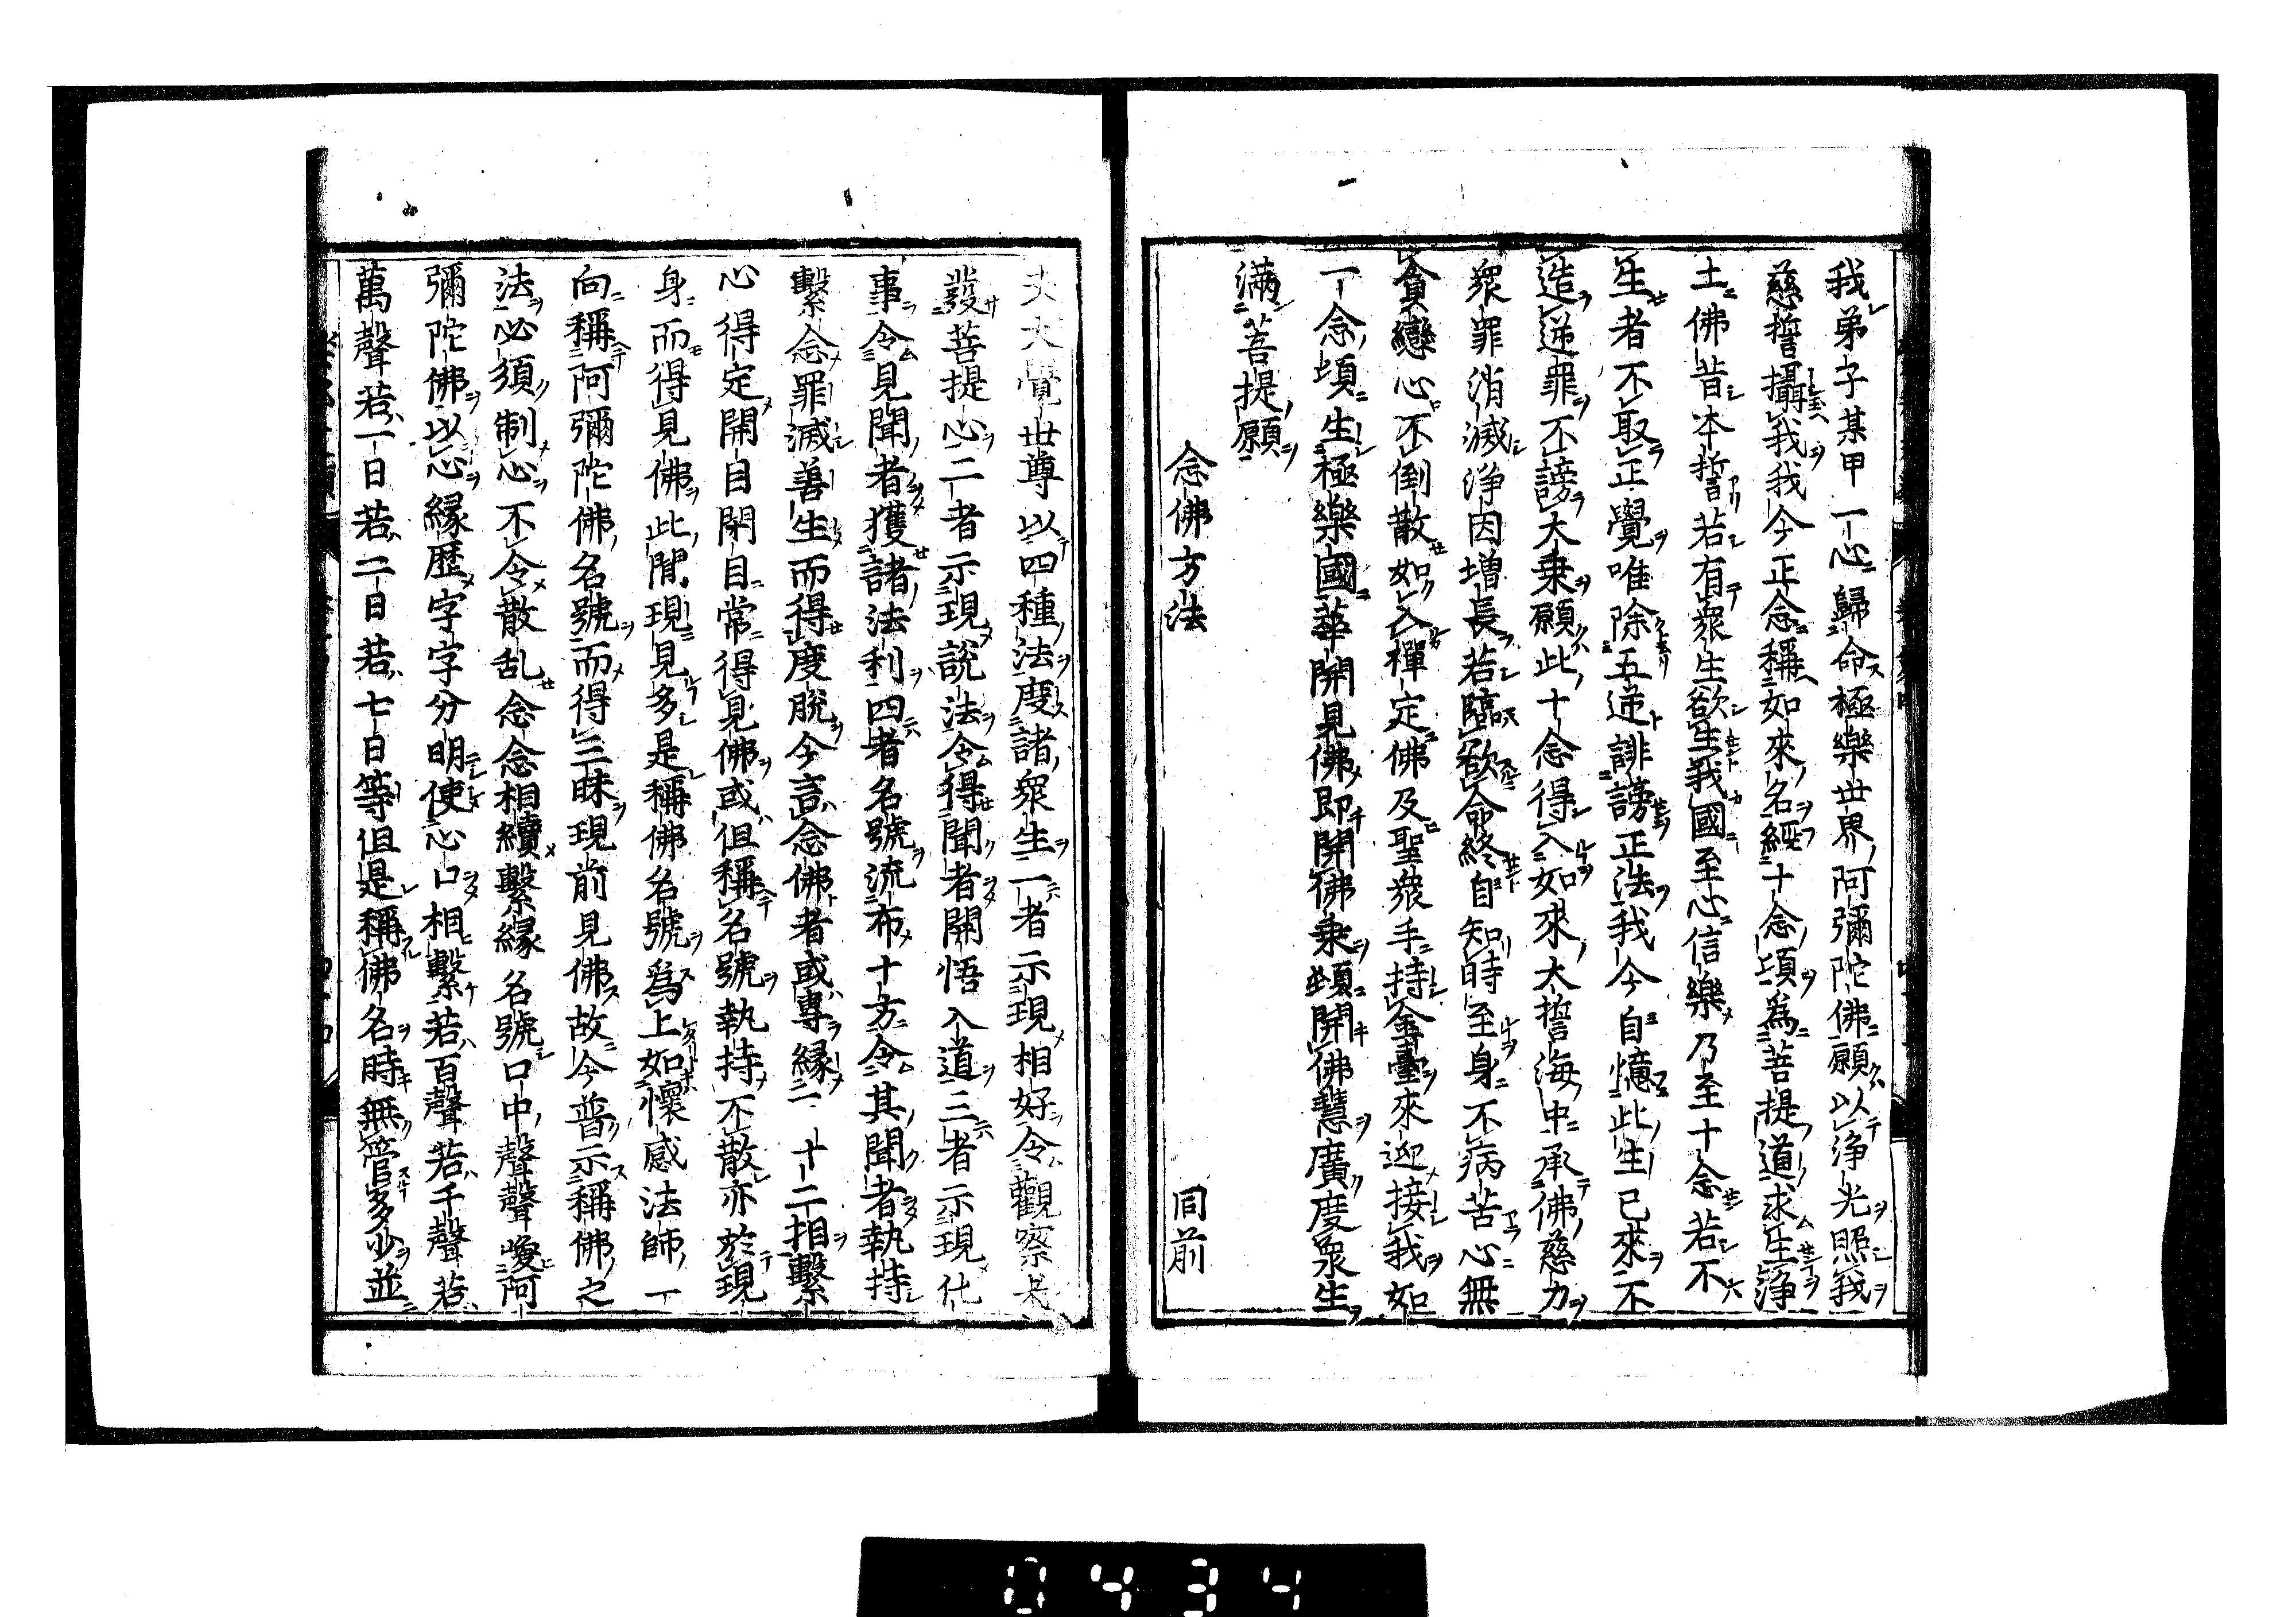 我弟子某甲一心歸命極樂世界阿彌陀佛願以淨光照我
慈誓攝我我今正念稱如來名經十念頃爲菩提道求生淨
土佛昔本誓若有衆生欲生我國至心信樂乃至十念若不
生者不取正覺唯除五逆誹謗正法我今自憶此生已來不
造逆罪不謗大乗願此十念得入如來大誓海中承佛慈力
衆罪消滅淨因增長若臨欲命終自知時至身不病苦心無
貪戀心不倒散如入禪定佛及聖衆手持金臺來迎接我如
一念頃生極樂國華開見佛即開佛乗頓開佛慧廣度衆生
滿菩提願
念佛方法 同前
夫大覺世尊以四種法度諸衆生一者示現相好令觀察者
發菩提心二者示現說法令得聞者開悟入道三者示現化
事令見聞者獲諸法利四者名號流布十方令其聞者執持
繫念罪滅善生而得度脫今言念佛者或專緣三十二相繫
心得定開目閉目常得見佛或但稱名號執持不散亦於現
身而得見佛此間現見多是稱佛名號爲上如懷感法師一
向稱阿彌陀佛名號而得三昧現前見佛故今普示稱佛之
法必須制心不令散乱念念相續繫緣名號口中聲聲喚阿
彌陀佛以心緣歷字字分明使心口相繫若百聲若千聲若
萬聲若一日若二日若七日等但是稱佛名時無管多少並
0434